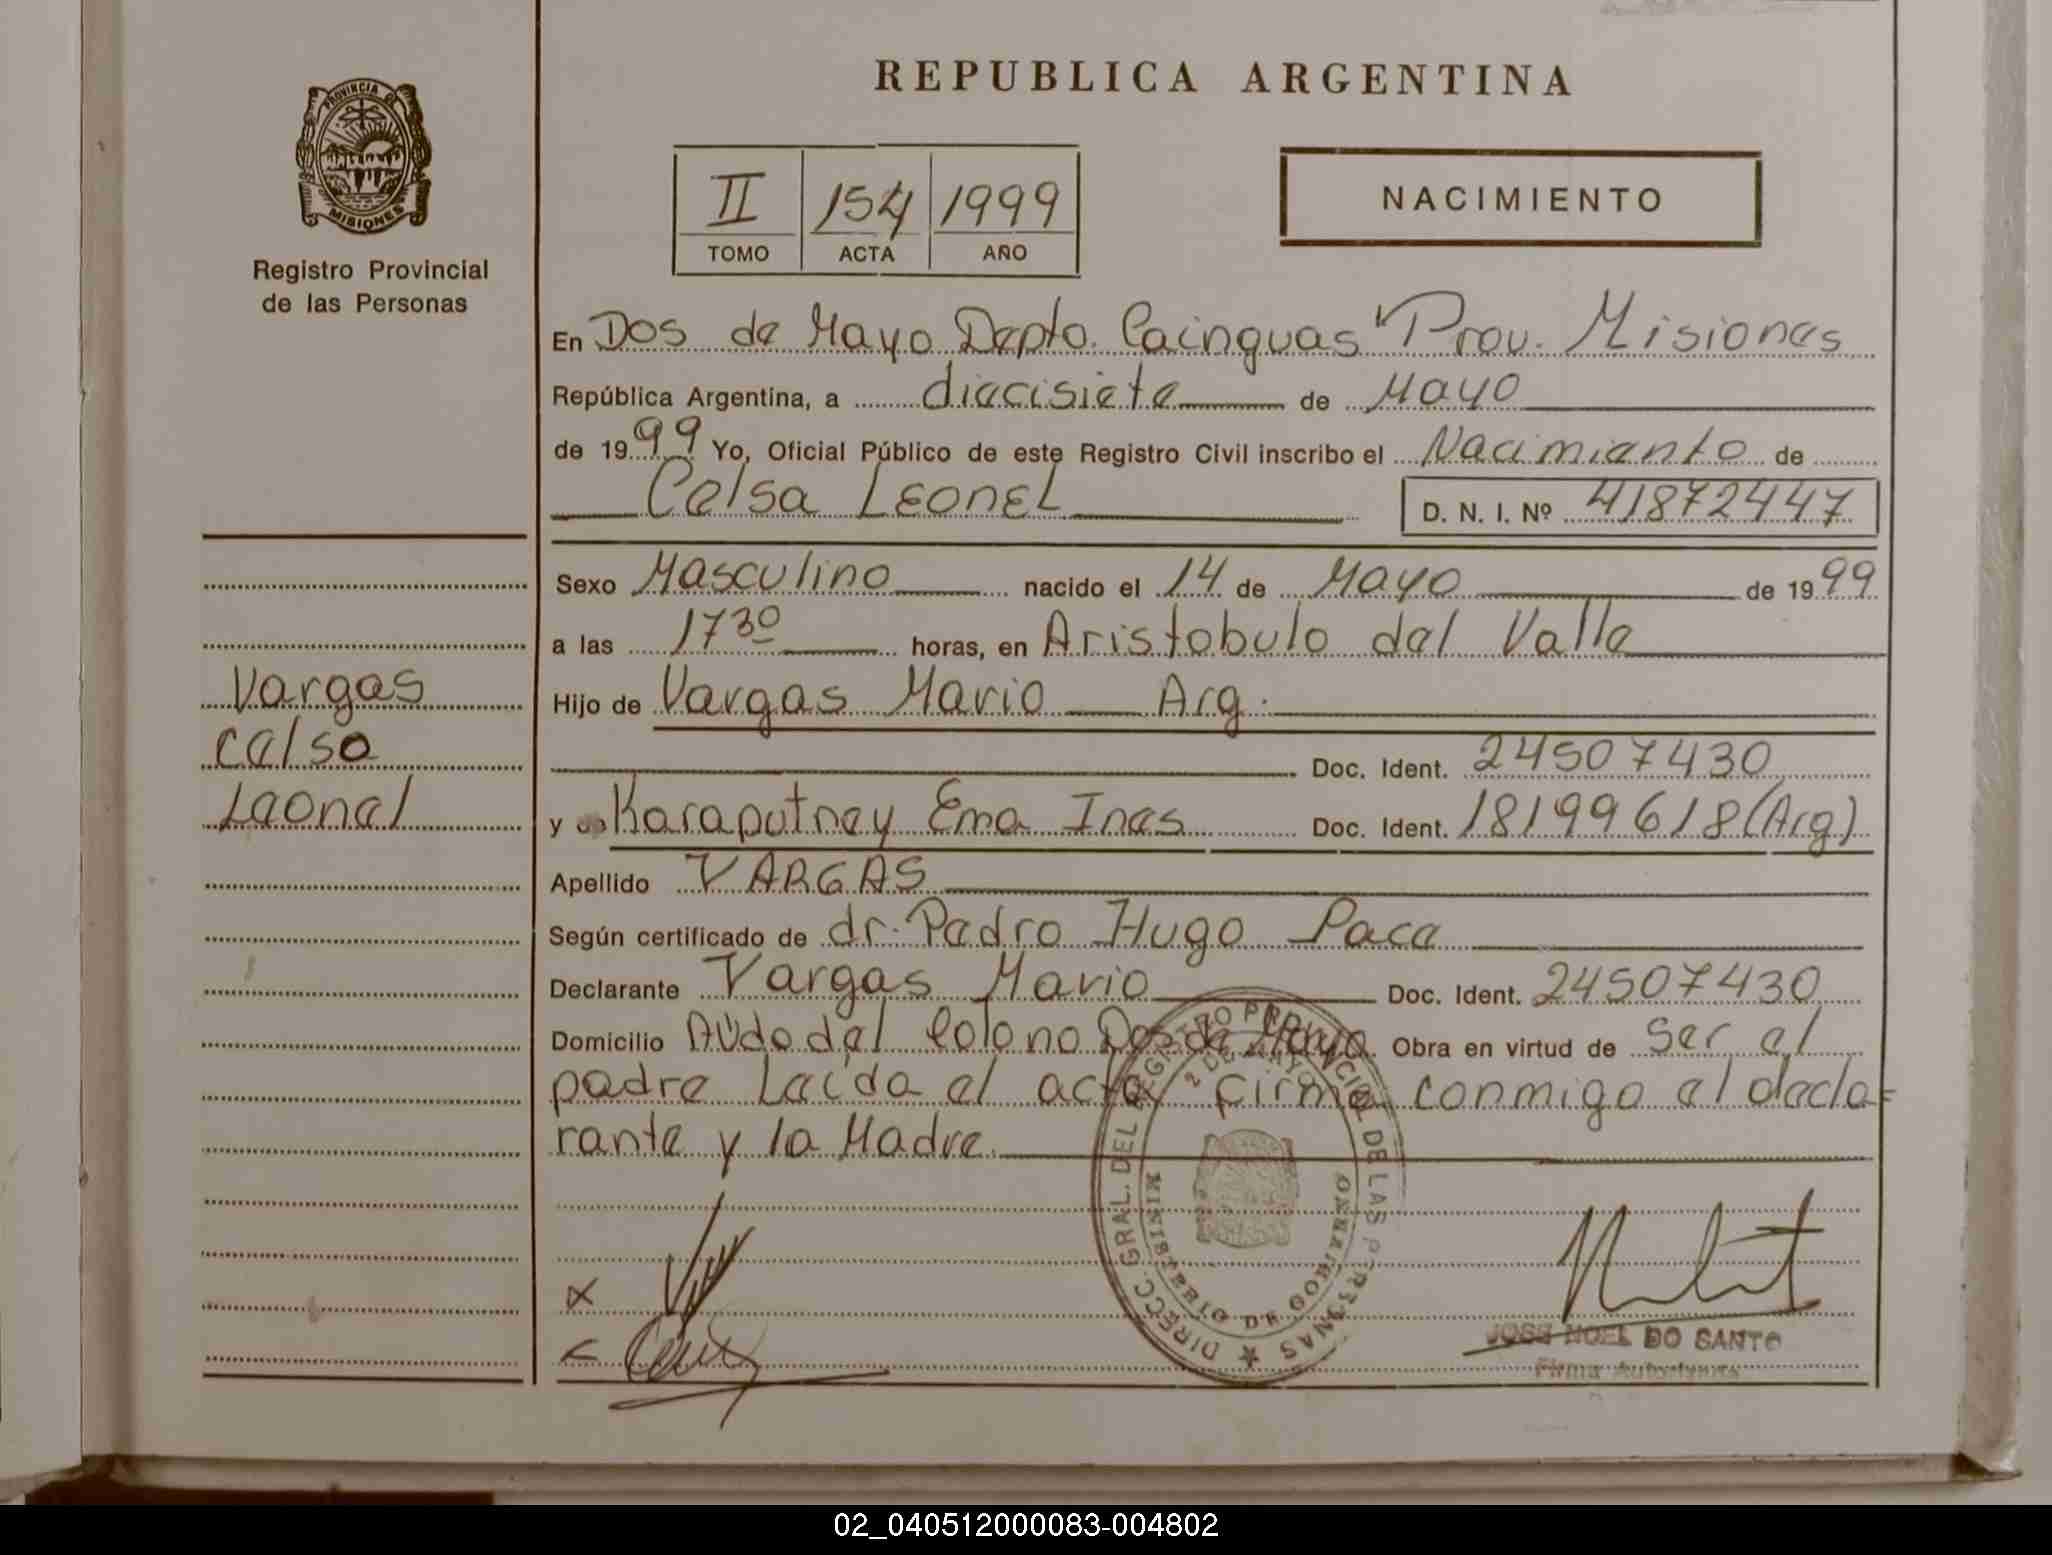 REPUBLICA ARGENTINA
PROVINCIA DE
MISIONES
Registro Provincial
de las Personas
II 154 1999
TOMO ACTA AÑO
NACIMIENTO
En Dos de Mayo Depto. Cainguas Prov. Misiones
República Argentina, a diecisiete de Mayo
de 1999 Yo, Oficial Público de este Registro Civil inscribo el Nacimiento de
Celsa Leonel D. N. I. Nº 41872447
Sexo Masculino nacido el 14 de Mayo de 1999
a las 1730 horas, en Aristobulo del Valle
Hijo de Vargas Mario Arg.
Doc. Ident. 24507430
y Karaputney Ema Ines Doc. Ident. 18199618 (Arg)
Apellido VARGAS
Según certificado de dr. Pedro Hugo Paca
Declarante Vargas Mario Doc. Ident. 24507430
Domicilio del Colono Dos de Mayo Obra en virtud de Ser el
padre Leída el acta firma conmigo el decla-
rante y la Madre.
Vargas
Celso
Leonel
DIRECC. GRAL. DEL REGISTRO PROVINCIAL DE LAS PERSONAS
2 DE MAYO
MINISTERIO DE GOBIERNO
JOSE NOEL DO SANTO
Firma Autorizada
02_040512000083-004802